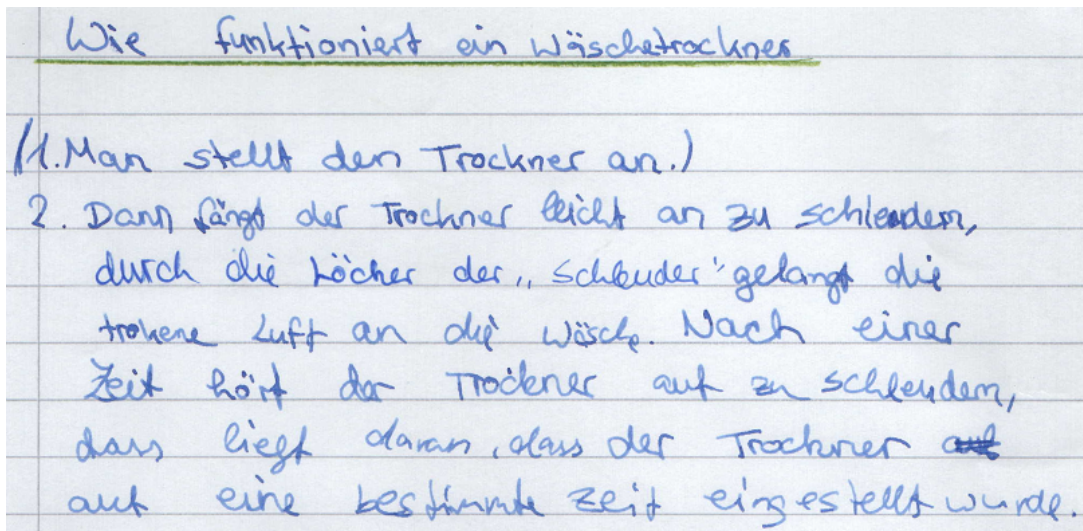 Wie funktioniert ein Wäschetrockner
(1. Man stellt den Trockner an.)
2. Dann fängt der Trockner leicht an zu schleudern,
durch die Löcher der „Schleuder" gelangt die
trokene Luft an die Wäsche. Nach einer
Zeit hört der Trockner auf zu schleudern,
dass liegt daran, dass der Trockner auf
auf eine bestimmte Zeit eingestellt wurde.